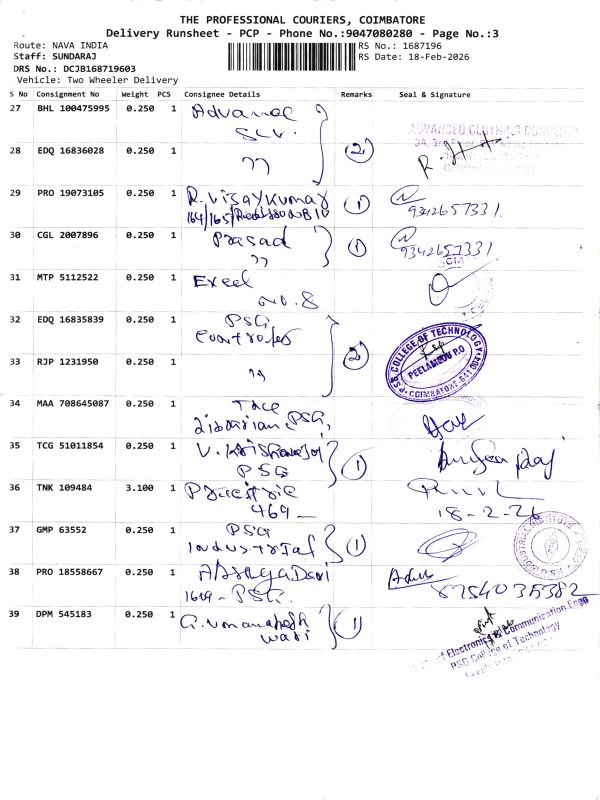 THE PROFESSIONAL COURIERS, COIMBATORE
Delivery Runsheet - PCP - Phone No.:9047080280 - Page No.:3
Route: NAVA INDIA
RS No.: 1687196
Staff: SUNDARAJ
RS Date: 18-Feb-2026
DRS No.: DCJB168719603
Vehicle: Two Wheeler Delivery
S No Consignment No Weight PCS Consignee Details Remarks Seal & Signature
27 BHL 100475995 0.250 1 Advanced
28 EDQ 16836028 0.250 1 " 2
29 PRO 19073105 0.250 1 R. Vijaykumar 1 9342657331.
164/165/
30 CGL 2007896 0.250 1 Prasad 1 9342657331
"
31 MTP 5112522 0.250 1 Excel
No. 8
32 EDQ 16835839 0.250 1 PSG
2 PSG COLLEGE OF TECHNOLOGY
PEELAMEDU P.O
COIMBATORE-641 004
33 RJP 1231950 0.250 1 "
34 MAA 708645087 0.250 1
Librarian PSG,
35 TCG 51011854 0.250 1 V.
PSG 1
36 TNK 109484 3.100 1
469 18-2-26
37 GMP 63552 0.250 1 PSG
Industrial 1 INDUSTRIAL INSTITUTE
38 PRO 18558667 0.250 1
1609 - PSG. 8754035382
39 DPM 545183 0.250 1 G. Umamahesh
wari 1
of Electronics & Communication Engg
PSG College of Technology